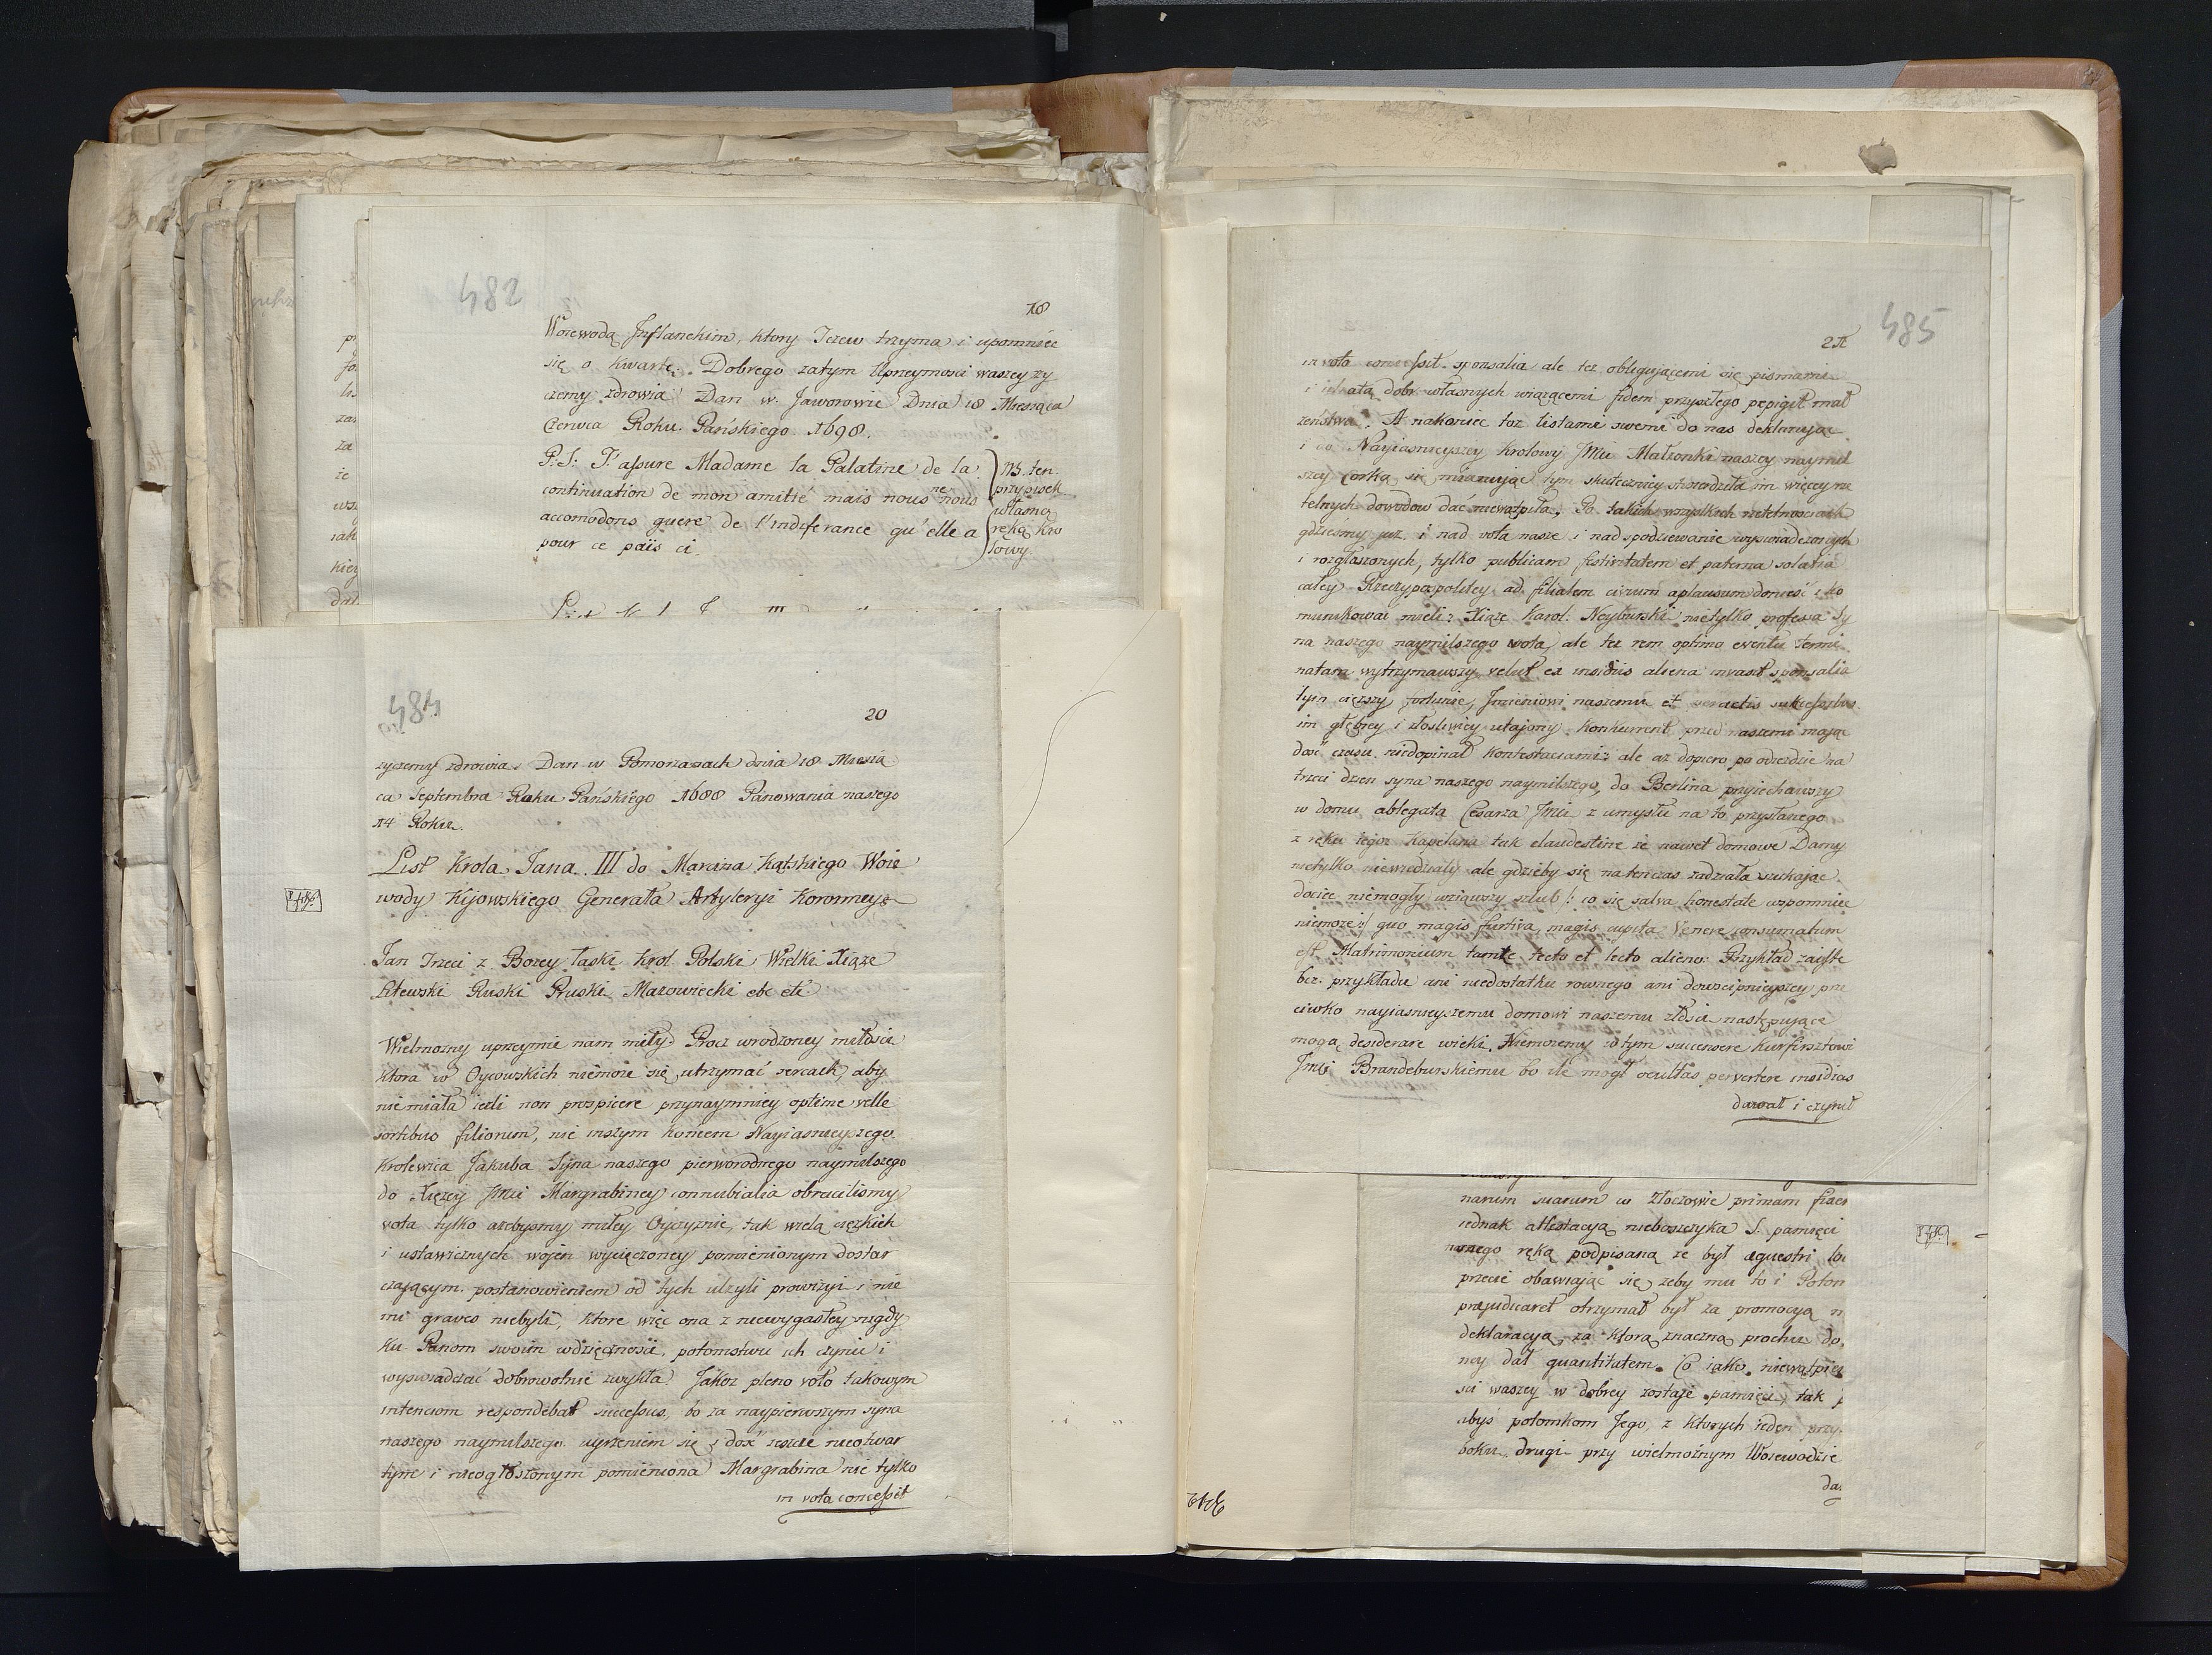 482
18
Woiewodą Inflanckim, ktory Jezew trzyma i upomniec
się o kwartę. Dobrego zatym Uprzeymosci waszey zy
czemy zdrowia Dan w Jaworowie Dnia 18 Miesiąca
Czerwca Roku Pańskiego 1698.
P: S: J'assure Madame la Palatine de la
continuation de mon amitié mais nous ne nous
accomodons guere de l'indiferance qu'elle a
pour ce païs ci
NB. ten
przypisek
własną
ręką kro
lowy.
484
20
zyczemy zdrowia. Dan w Pomorzanach dnia 18 Miesią
ca Septembra Roku Pańskiego 1688 Panowania naszego
14 Roku.
List Krola Jana III do Marcina Kątskiego Woie
wody Kijowskiego Generała Artyleryi Koronney
Jan Trzeci z Bozey łaski Krol Polski Wielki Xiąze
Litewski Ruski Pruski Mazowiecki etc etc
Wielmozny uprzeymie nam miły. Procz wrodzoney miłości
ktora w Oycowskich niemoze się utrzymać sercach, aby
nie miała iezli non prospicere przynaymniey optime velle
sortibus filiorum, nie inszym końcem Nayiasnieyszego
Krolewica Jakuba Syna naszego pierworodnego naymilszego
do Xięzey Jmci Margrabiney connubialia obrociliśmy
vota tylko azebysmy miłey Oyczyznie, tak wielą cięzkich
i ustawicznych wojen wycięczoney pomienionym dostar
czającym postanowieniem od tych ulzyli prowizyi i nie
mi graves niebyli, ktore więc ona z niewygasłey nigdy
ku Panom swoim wdzięcznosci, potomstwu ich czynić i
wyswiadczać dobrowolnie zwykła. Jakoz pleno voto takowym
intenciom respondebat successus, bo za naypierwszym syna
naszego naymilszego uyrzeniem się z dość ieszcze nieotwar
tym i nieogłoszonym pomieniona Margrabina nie tylko
in vota concessit
485
21
in vota concessit sponsalia ale tez obligującemi się pismami
i utratą dobr własnych wiązącemi fidem przyszłego pepigit mał
zeństwa. A nakoniec toz listami swemi do nas deklarując
i do Nayiasnieyszey Krolowy Jmci Małzonki naszey naymil
szey Corką się mianując tym skuteczniey stwierdziła im więcey rze
telnych dowodow dać niewątpiła. Po takich wszystkich rzetelnosciach
gdzieśmy juz i nad vota nasze i nad spodziewanie wyswiadczonych
i rozgłaszonych, tylko publicam festivitatem et paterna solatia
całey Rzeczypospolitey ad filialem civium aplausum donieść i ko
munikować mieli: Xiąze Karol Neyburski nietylko professa Sy
na naszego naymilszego vota, ale tez rem optimo eventu termi
natam wytrzymawszy velut ex insidiis aliena invasit sponsalia
tym cięzszy fortunie, Imieniowi naszemu et
im głębiey i złosliwiey utajony Konkurrent przed naszemi mając
dość czasu niedopinał kontestaciami: ale az dopiero po odiezdzie na
trzeci dzien syna naszego naymilszego, do Berlina przyiechawszy
w domu ablegata Cesarza Jmci z umysłu na to przysłanego
z ręku tegoz Kapelana tak clandestine ze nawet domowe Damy
nietylko niewiedziały ale gdzieby się natenczas zadziała szukając
dociec niemogły wziąwszy szlub! co się salva honestate wspomniec
niemoze! quo magis furtiva, magis cupita Venere consumatum
est Matrimonium tamte tecto et lecto alieno. Przykład zaiste
bez przykładu ani niedostatku rownego ani dowscipnieyszey prze
ciwko nayiasnieyszemu domowi naszemu złości następujące
mogą desiderare wieki. Niemozemy w tym succensere Kurfirsztowi
Jmci Brandeburskiemu bo ile mogł ocultas pervertere insidias
dawał i czynił
narum suarum w Złoczowie primam
iednak attestacyą nieboszczyka S. pamięci
ręką podpisaną ze był equestri
przecie obawiając się zeby mu to i
prejudicaret otrzymał był za promocyą
deklaracyą, za ktorą znaczną prochu do
ney dał quantitatem. Co iako niewątpie
sci waszey w dobrey zostaje pamięci, tak
abyś potomkom Jego, z ktorych ieden przy
boku drugi przy wielmożnym Woiewodzie
da